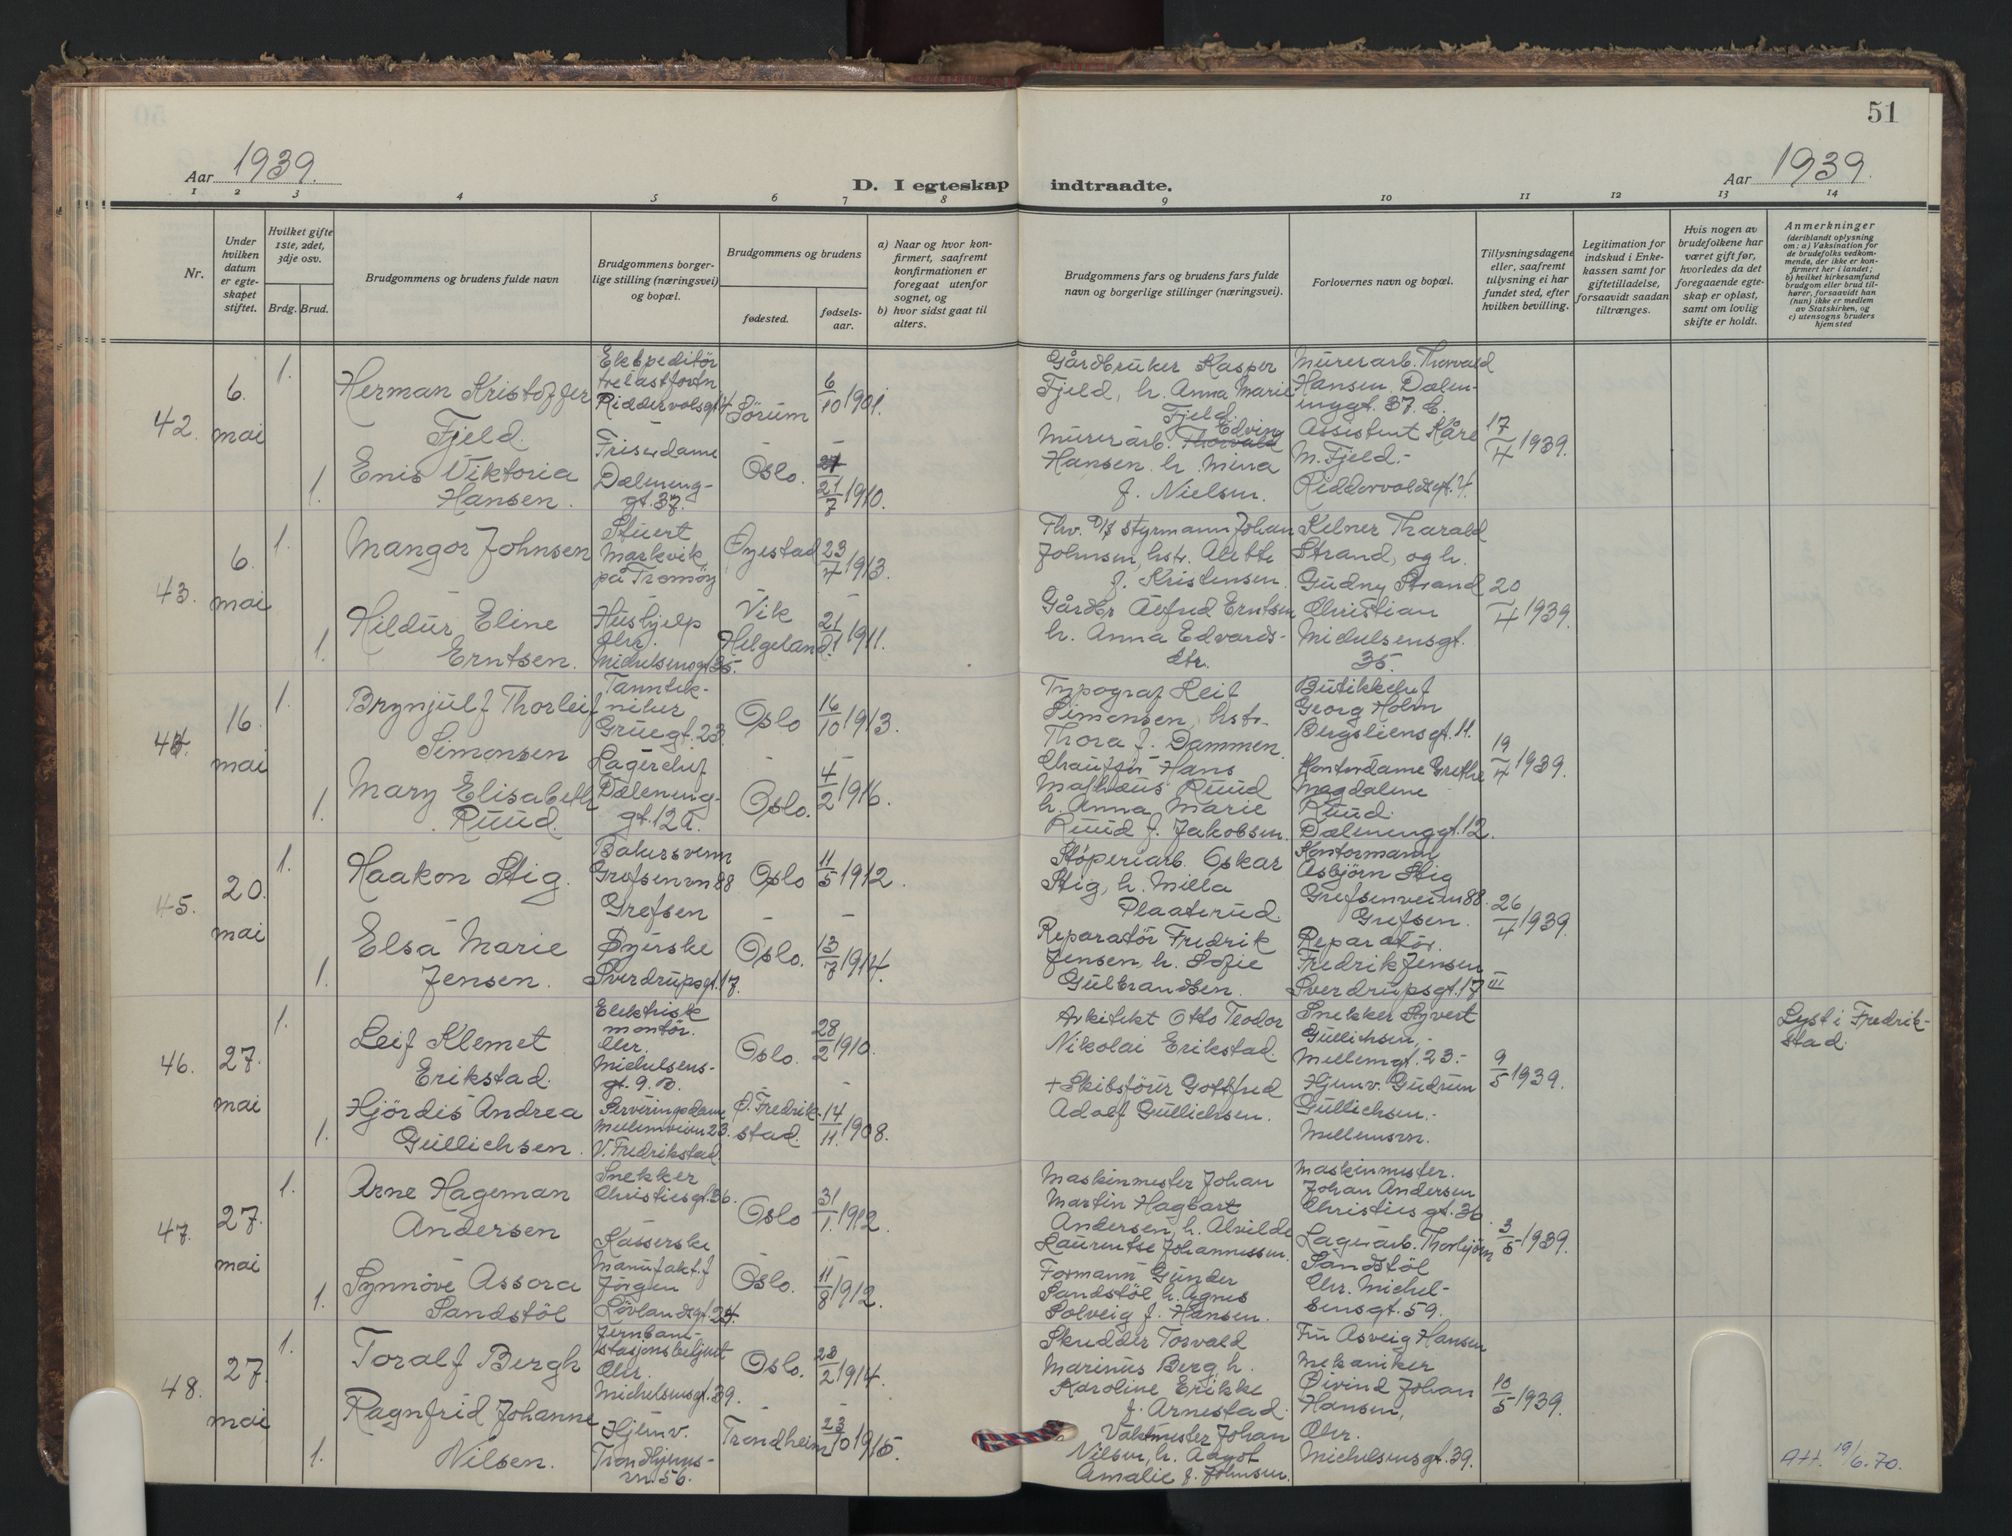 51
Aar 1939.
Aar 1939.
D. I egteskap indtraadte.
1 2 3 4 5 6 7 8 9 10 11 12 13 14
Nr.
Under hvilken datum er egteskapet stiftet.
Hvilket gifte 1ste, 2det, 3dje osv.
Brdg. Brud.
Brudgommens og brudens fulde navn
Brudgommens borgerlige stilling (næringsvei) og bopæl.
Brudgommens og brudens
fødested.
fødselsaar.
a) Naar og hvor konfirmert, saafremt konfirmationen er foregaat utenfor sognet, og
b) hvor sidst gaat til alters.
Brudgommens fars og brudens fars fulde navn og borgerlige stillinger (næringsvei).
Forlovernes navn og bopæl.
Tillysningsdagene eller, saafremt tillysning ei har fundet sted, efter hvilken bevilling.
Legitimation for indskud i Enkekassen samt for giftetilladelse, forsaavidt saadan tiltrænges.
Hvis nogen av brudefolkene har været gift før, hvorledes da det foregaaende egteskap er opløst, samt om lovlig skifte er holdt.
Anmerkninger
(deriblandt oplysning om: a) Vaksination for de brudefolks vedkommende, der ikke er konfirmert her i landet; b) hvilket kirkesamfund brudgom eller brud tilhører, forsaavidt han (hun) ikke er medlem av Statskirken, og c) utensogns bruders hjemsted
42.
6. mai
1.
Herman Kristoffer
Fjeld.
Ekspeditör
trelastforetn
Riddervoldsgt 4.
Sörum
6/10 1901.
Gårdbruker Kasper
Fjeld, h. Anna Marie
Fjeld.
Murerarb. Thorvald
Hansen, Dælen-
enggt. 37. b.
17/4 1939.
1.
Enis Viktoria
Hansen.
Friserdame
Dæleneng-
gt. 37.
Oslo.
21/7 1910.
Murerarb. Thorvald Edvin
Hansen. h. Mina
f. Nielsen.
Assistent Kåre
M. Fjeld.-
Riddervoldsgt. 4.
43.
6. mai
1.
Mangor Johnsen
Stuert
Markvik
på Tromöy
Öyestad
23/4 1913.
Fhv. D/S styrmann Johan
Johnsen, hstr. Alette
f. Kristensen.
Kelner Tharald
Strand, og h.
Gudny Strand
20/4 1939.
1.
Hildur Eline
Erntsen.
Hushjelp
Chr.
Michelsensgt. 35.
Vik
Helgeland.
21/1 1911.
Gårdbr Alfred Erntsen
h. Anna Edvards-
dtr.
Christian
Michelsensgt.
35.
44.
16. mai
1.
Brynjulf Thorleif
Simonsen
Tanntek-
niker
Gruegt. 23.
Oslo
16/10 1913.
Typograf Leif
Simonsen, hstr.
Thora f. Dammen.
Butikkchef
Georg Holm
Bergsliensgt. 11.
19/4 1939.
1.
Mary Elisabeth
Ruud.
Lagerchef
Dæleneng-
gt. 12a.
Oslo.
4/2 1916.
Chaufför Hans
Mathæus Ruud
h. Anna Marie
Ruud f. Jakobsen.
Kontordame Grethe
Magdalene
Ruud.
Dælenenggt. 12.
45.
20. mai
1.
Haakon Stig.
Bakersvenn
Grefsenvn 88
Grefsen
Oslo
11/5 1912.
Stöperiarb. Oskar
Stig, h. Milla
Plaaterud.
Kontormann
Asbjörn Stig
Grefsenveien 88.
Grefsen.
26/4 1939.
1.
Elsa Marie
Jensen.
Syerske
Sverdrupsgt. 17.
Oslo.
13/7 1914.
Reparatör Fredrik
Jensen, h. Sofie
Gulbrandsen.
Reparatör.
Fredrik Jensen
Sverdrupsgt. 17 III
46.
27. mai
1.
Leif Klemet
Erikstad.
Elektrisk
montör.
Chr.
Michelsens-
gt. 9.
Oslo.
28/2 1910.
Arkitekt Otto Teodor
Nikolai Erikstad.
Snekker Syvert
Gullichsen,-
Mellemgt. 23.-
9/5 1939.
Lyst i Fredrik-
stad.
1.
Hjördis Andrea
Gullichsen.
Serveringsdame
Mellemveien 23.
V. Fredrikstad.
Ö. Fredrik-
stad.
14/11. 1908.
+ Skibsförer Gottfred
Adolf Gullichsen.
Hjemv. Gudrun
Gullichsen.-
Mellemvn.
47.
27. mai
1.
Arne Hageman
Andersen
Snekker
Christiesgt. 36.
Oslo
31/1. 1912.
Maskinmester Johan
Martin Hagbart
Andersen, h. Alvilde
Laurentse Johannessen.
Maskinmester.
Johan Andersen
Christiesgt. 36.
3/5 1939.
1.
Synnöve Assora
Sandstöl
Kasserske
Manufakt. f
Jörgen
Lövlandsgt. 24.
Oslo.
11/8 1912.
Formann Gunder
Sandstöl h. Agnes
Solveig f. Hansen.
Lagerarb. Thorbjörn
Sandstöl
Chr. Michel-
sensgt. 59.
48.
27. mai
1.
Toralf Bergh
Jernban-
stasjonsbetjent
Chr.
Michelsensgt. 39.
Oslo.
23/2 1914.
Skredder Torvald
Marinus Berg, h.
Karoline Erikke
f. Arnestad.
Fru Asveig Hansen
Mekaniker
Öivind Johan
Hansen,
Chr.
Michelsensgt. 39.
10/5 1939.
1.
Ragnfrid Johanne
Nilsen.
Hjemv.
Trondhjems-
vn. 56.
Trondheim
23/10 1915.
Vaktmester Johan
Nilsen, h. Aagot
Amalie f. Johnsen.
Att. 19/6. 70.